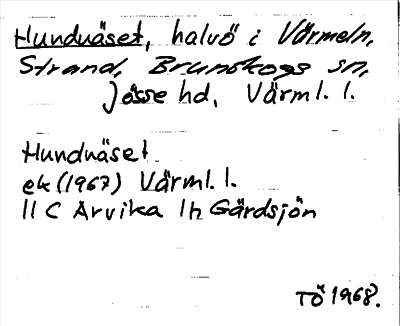 Hundnäset, halvö i Värmeln,
Strand, Brunskogs sn,
Jösse hd, Värml. l.
Hundnäset
ek (1967) Värml. l.
11 C Arvika 1h Gärdsjön
TÖ 1968.